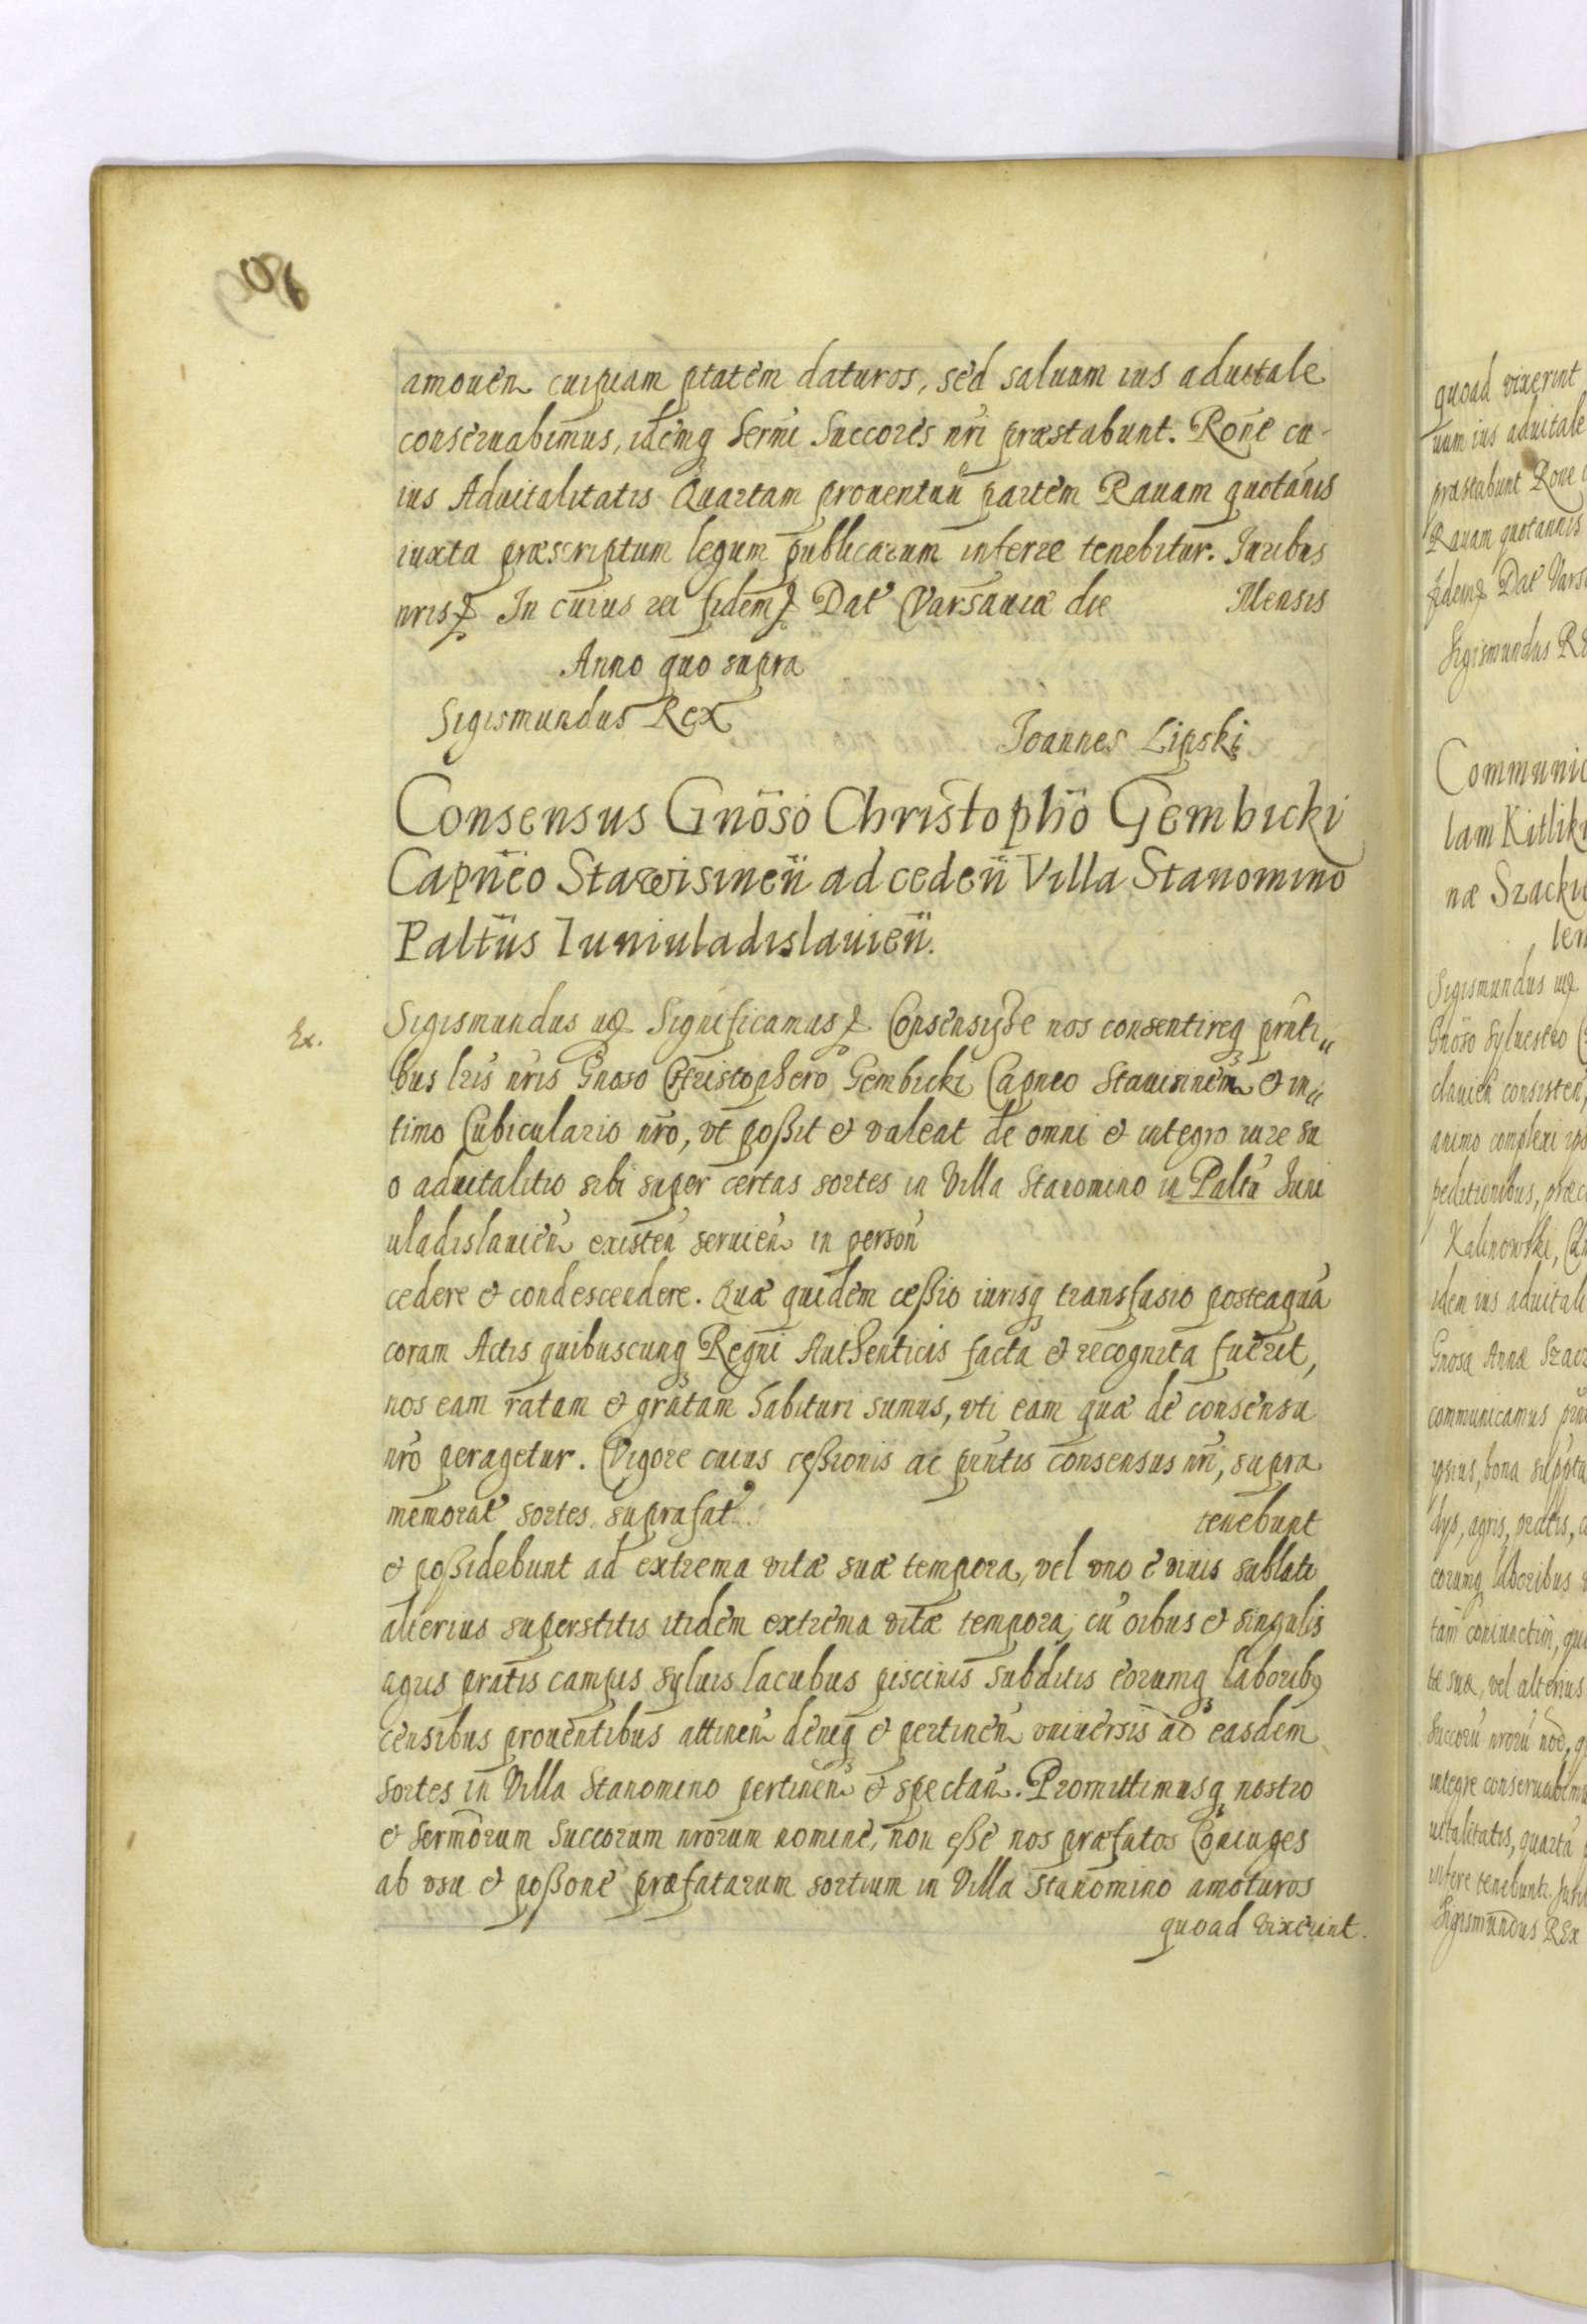 amouen cuipiam ptatem daturos, sed saluum ius aduitale
conseruabimus, idemq Sermi Succores nri præstabunt. Rone cu-
ius Aduitalitatis Quartam prouentuu partem Rauam quotanis
iuxta præscriptum legum publicarum inferre tenebitur. Iuribus
nris In cuius rei fidem Dat Varsauiæ die Mensis
Anno quo supra
Sigismundus Rex
Joannes Lipski
Consensus Gnoso Christopho Gembicki
Capneo Stawisinen ad ceden Villa Stanomino
Paltus Iuniuladislauien.
Ex.
Sigismundus Significamus Consensisse nos consentireq pnti„
bus lris nris Gnoso Christophero Gembicki Capneo Stauisinen et in„
timo Cubiculario nro, vt possit et valeat de omni et integro iure su
o aduitalitio sibi super certas sortes in Villa Stanomino in Paltu Iuni
uladislauien existen seruien in person
cedere et condescendere. Quæ quidem cessio iurisq transfusio posteaqua
coram Actis quibuscunq Regni Authenticis facta et recognita fuerit,
nos eam ratam et gratam habituri sumus, vti eam quæ de consensu
nro peragetur. Vigore cuius cessionis ac pntis consensus nri, supra
memorat sortes suprafat tenebunt
et possidebunt ad extrema vitæ suæ tempora, vel vno è viuis sublato
alterius superstitis itidem extrema vitæ tempora, cu oibus et singulis
agris pratis campis syluis lacubus piscinis subditis eorumq laborib9
censibus prouentibus attinen deniq et pertinen vniuersis ad easdem
sortes in Villa Stanomino pertinen et spectan. Promittimusq nostro
et Sermorum Succorum nrorum nomine, non esse nos præfatos Coniuges
ab vsu et possone præfatarum sortium in Villa Stanomino amoturos
quoad vixerint.
quoad vixerint
uum ius aduitale
præstabunt Rone
Rauam quotannis
fidem Dat Vars
Sigismundus RE
Communic
lam Kitlik
næ Szacki
len
Sigismundus
Gnoso Syluestro
clauien consisten,
animo complexi
peditionibus,
Kalinowski,
idem ius aduital
Gnosa Annæ Szac
communicamus
ipsius, bona
dys, agris, pratis,
eorumq laboribus
tam coniunctim,
tæ suæ, vel alterius
Succoru nroru noe,
integre conseruabim
uitalitatis, quarta
infere tenebunt
Sigismundus REx